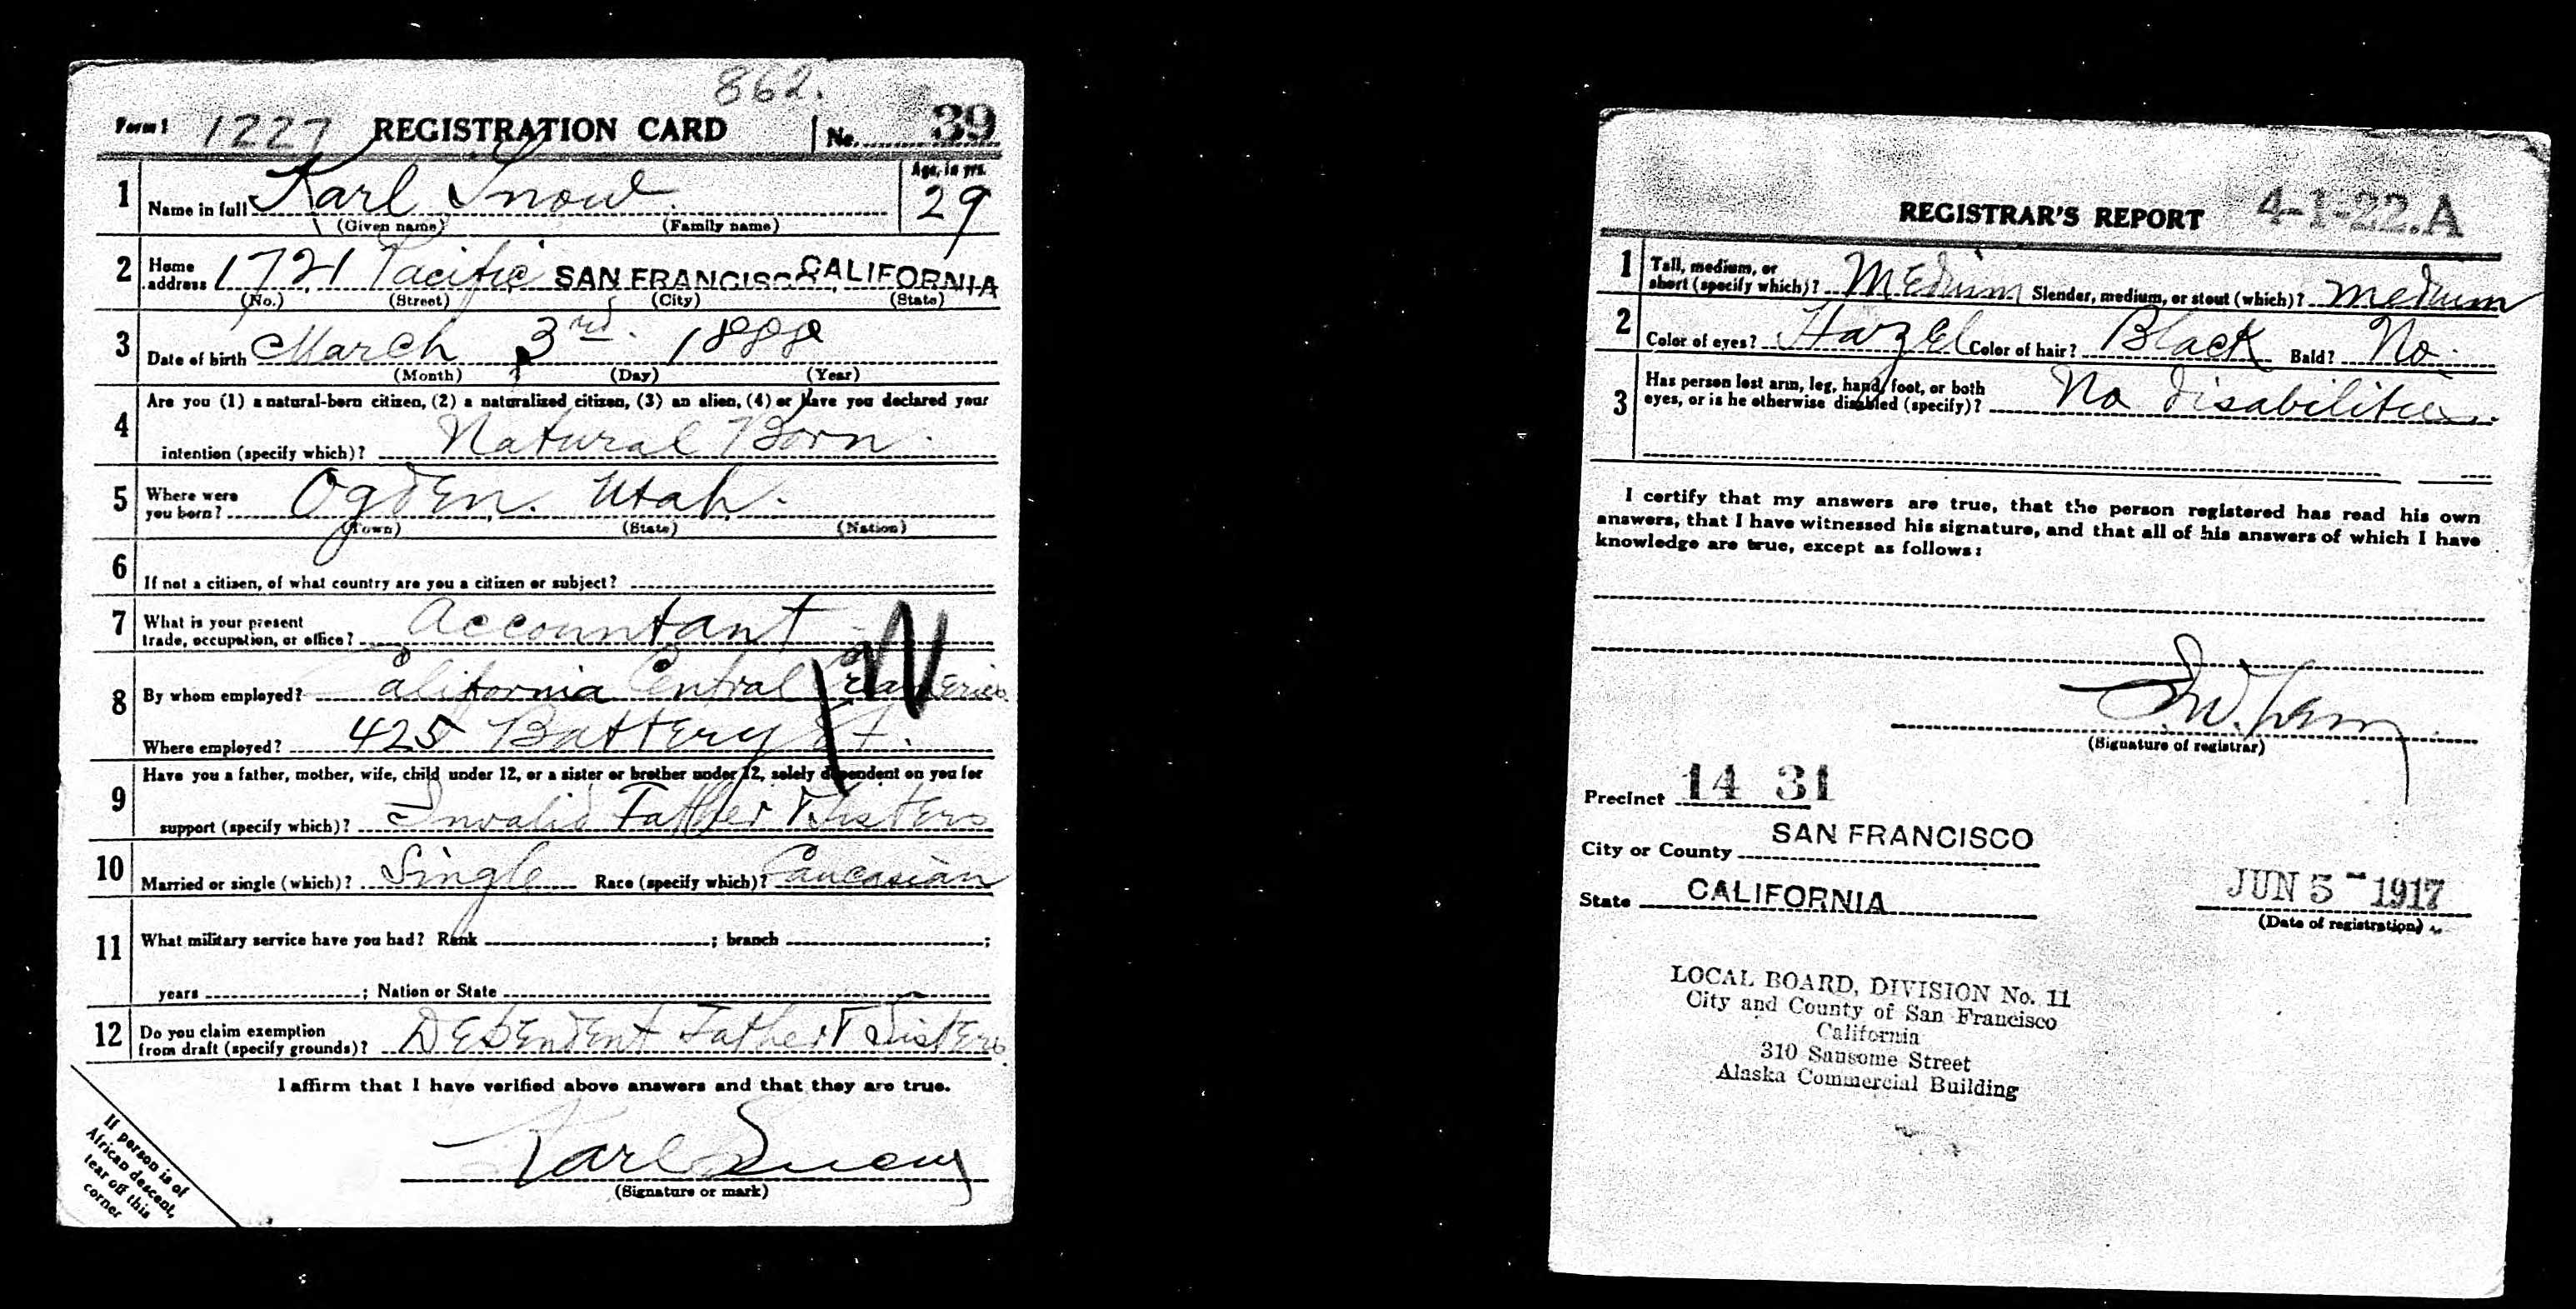 862.
Form 1 1227 REGISTRATION CARD No. 39
1 Name in full Karl Snow Age, in yrs. 29
(Given name) (Family name)
2 Home address 1721 Pacific SAN FRANCISCO CALIFORNIA
(No.) (Street) (City) (State)
3 Date of birth March 3rd. 1888
(Month) (Day) (Year)
4 Are you (1) a natural-born citizen, (2) a naturalized citizen, (3) an alien, (4) or have you declared your
intention (specify which)? Natural Born.
5 Where were you born? Ogden. Utah.
(Town) (State) (Nation)
6 If not a citizen, of what country are you a citizen or subject?
7 What is your present trade, occupation, or office? Accountant
8 By whom employed? California Central Creameries
Where employed? 425 Battery St.
9 Have you a father, mother, wife, child under 12, or a sister or brother under 12, solely dependent on you for
support (specify which)? Invalid Father & Sisters
10 Married or single (which)? Single Race (specify which)? Caucasian
11 What military service have you had? Rank ; branch ;
years ; Nation or State
12 Do you claim exemption from draft (specify grounds)? Dependent Father & Sisters
I affirm that I have verified above answers and that they are true.
Karl Snow
(Signature or mark)
If person is of
African descent,
tear off this
corner
REGISTRAR'S REPORT 4-1-22.A
1 Tall, medium, or short (specify which)? Medium Slender, medium, or stout (which)? Medium
2 Color of eyes? Hazel Color of hair? Black Bald? No.
3 Has person lost arm, leg, hand, foot, or both eyes, or is he otherwise disabled (specify)? No disabilities.
I certify that my answers are true, that the person registered has read his own
answers, that I have witnessed his signature, and that all of his answers of which I have
knowledge are true, except as follows:
(Signature of registrar)
Precinct 14 31
City or County SAN FRANCISCO
State CALIFORNIA JUN 5 - 1917
(Date of registration)
LOCAL BOARD, DIVISION No. 11
City and County of San Francisco
California
310 Sansome Street
Alaska Commercial Building